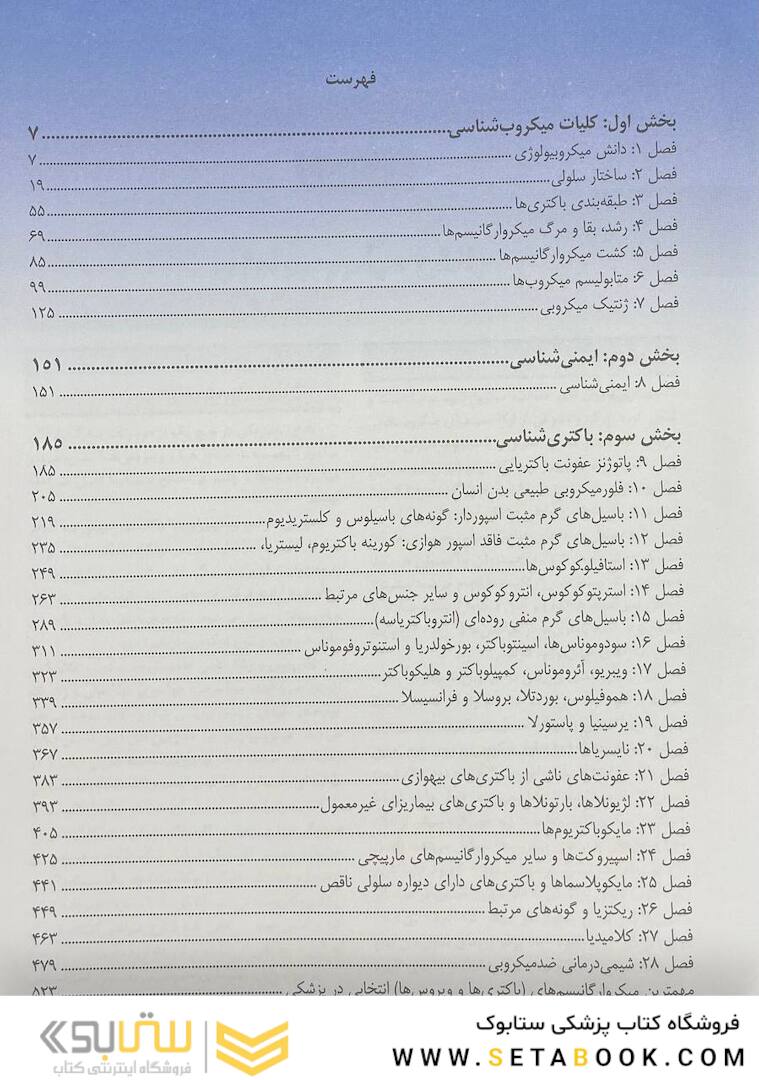 فهرست
بخش اول: کلیات میکروب‌شناسی ........ ۷
فصل ۱: دانش میکروبیولوژی ........ ۷
فصل ۲: ساختار سلولی ........ ۱۹
فصل ۳: طبقه‌بندی باکتری‌ها ........ ۵۵
فصل ۴: رشد، بقا و مرگ میکروارگانیسم‌ها ........ ۶۹
فصل ۵: کشت میکروارگانیسم‌ها ........ ۸۵
فصل ۶: متابولیسم میکروب‌ها ........ ۹۹
فصل ۷: ژنتیک میکروبی ........ ۱۲۵
بخش دوم: ایمنی‌شناسی ........ ۱۵۱
فصل ۸: ایمنی‌شناسی ........ ۱۵۱
بخش سوم: باکتری‌شناسی ........ ۱۸۵
فصل ۹: پاتوژنز عفونت باکتریایی ........ ۱۸۵
فصل ۱۰: فلورمیکروبی طبیعی بدن انسان ........ ۲۰۵
فصل ۱۱: باسیل‌های گرم مثبت اسپوردار: گونه‌های باسیلوس و کلستریدیوم ........ ۲۱۹
فصل ۱۲: باسیل‌های گرم مثبت فاقد اسپور هوازی: کورینه باکتریوم، لیستریا، ........ ۲۳۵
فصل ۱۳: استافیلوکوکوس‌ها ........ ۲۴۹
فصل ۱۴: استرپتوکوکوس، انتروکوکوس و سایر جنس‌های مرتبط ........ ۲۶۳
فصل ۱۵: باسیل‌های گرم منفی روده‌ای (انتروباکتریاسه) ........ ۲۸۹
فصل ۱۶: سودوموناس‌ها، اسینتوباکتر، بورخولدریا و استنوتروفوموناس ........ ۳۱۱
فصل ۱۷: ویبریو، آئروموناس، کمپیلوباکتر و هلیکوباکتر ........ ۳۲۳
فصل ۱۸: هموفیلوس، بوردتلا، بروسلا و فرانسیسلا ........ ۳۳۹
فصل ۱۹: یرسینیا و پاستورلا ........ ۳۵۷
فصل ۲۰: نایسریاها ........ ۳۶۷
فصل ۲۱: عفونت‌های ناشی از باکتری‌های بیهوازی ........ ۳۸۳
فصل ۲۲: لژیونلاها، بارتونلاها و باکتری‌های بیماریزای غیرمعمول ........ ۳۹۳
فصل ۲۳: مایکوباکتریوم‌ها ........ ۴۰۵
فصل ۲۴: اسپیروکت‌ها و سایر میکروارگانیسم‌های مارپیچی ........ ۴۲۵
فصل ۲۵: مایکوپلاسماها و باکتری‌های دارای دیواره سلولی ناقص ........ ۴۴۱
فصل ۲۶: ریکتزیا و گونه‌های مرتبط ........ ۴۴۹
فصل ۲۷: کلامیدیا ........ ۴۶۳
فصل ۲۸: شیمی‌درمانی ضدمیکروبی ........ ۴۷۹
مهمترین میکروارگانیسم‌های (باکتری‌ها و ویروس‌ها) انتخابی در پزشکی ........ ۵۲۳
فروشگاه کتاب پزشکی ستابوک
WWW.SETABOOK.COM
ستابوک
فروشگاه اینترنتی کتاب